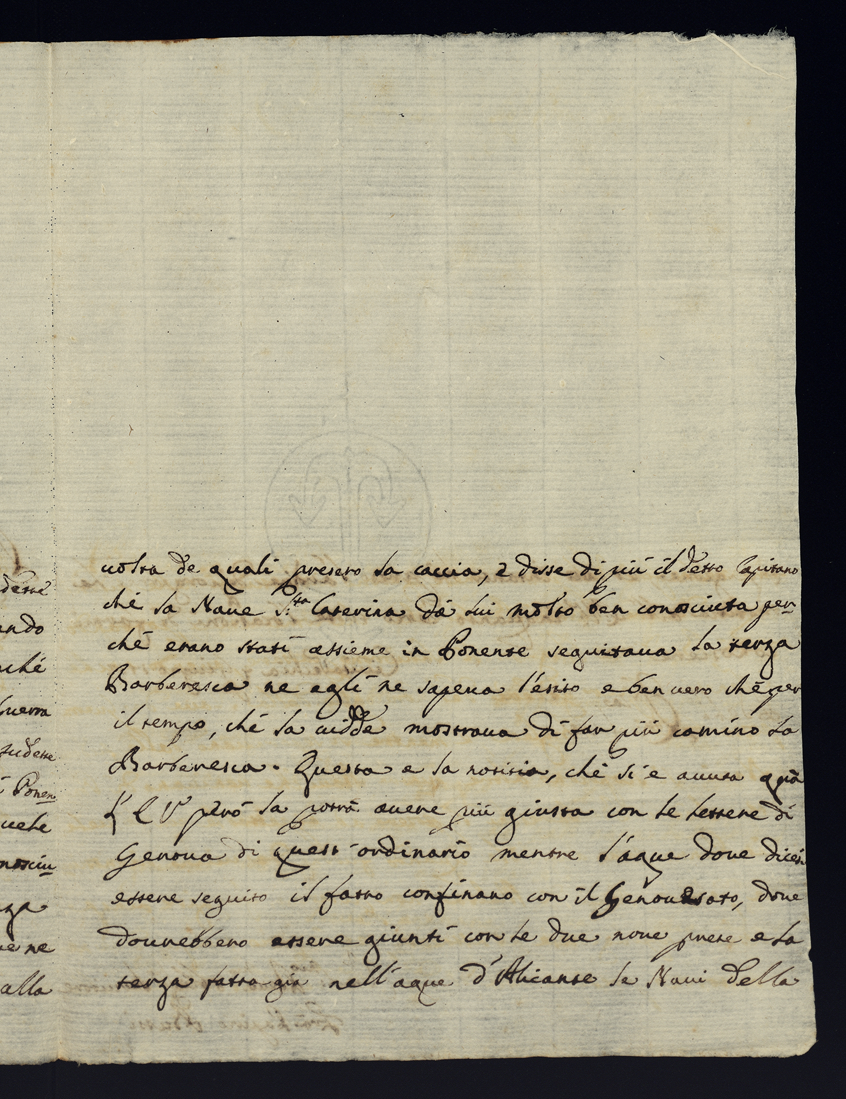 uolta de quali presero la caccia, e disse di più il detto Capitano
ché la Naue S.ta Caterina dà lui molto ben conosciuta per
ché erano stati assieme in Ponente seguitaua la terza
Barberesca ne egli ne sapeua l'esito e ben uero ché per
il tempo, ché la uidde mostraua di far più camino la
Barberesca. Questa e la notitia, ché si è auuta quà
però la potrà auere più giusta con le lettere di
Genoua di quest ordinario mentre l'aque doue dicesi
essere seguito il fatto confinano con il Genouesato, doue
dourebbero essere giunti con le due noue prese e la
terza fatta già nell'aque d'Alicante le Naui della
desse
ando
ché
Guerra
Ponen
uele
nosciu
nza
ne
alla